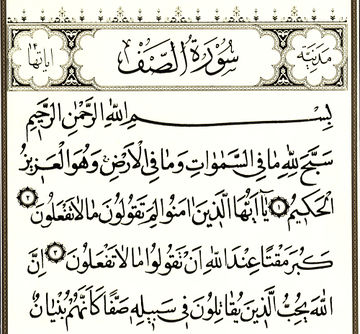 مدنية سورة الصف اياتها ١٤
بِسْمِ اللهِ الرَّحْمٰنِ الرَّحِيمِ
سَبَّحَ لِلّٰهِ مَا فِى السَّمٰوَاتِ وَمَا فِى الْاَرْضِۚ وَهُوَ الْعَزِيزُ
الْحَكِيمُ ١ يَآ اَيُّهَا الَّذِينَ اٰمَنُوا لِمَ تَقُولُونَ مَا لَا تَفْعَلُونَ ٢
كَبُرَ مَقْتًا عِنْدَ اللهِ اَنْ تَقُولُوا مَا لَا تَفْعَلُونَ ٣ اِنَّ
اللهَ يُحِبُّ الَّذِينَ يُقَاتِلُونَ فِى سَبِيلِهِ صَفًّا كَاَنَّهُمْ بُنْيَانٌ